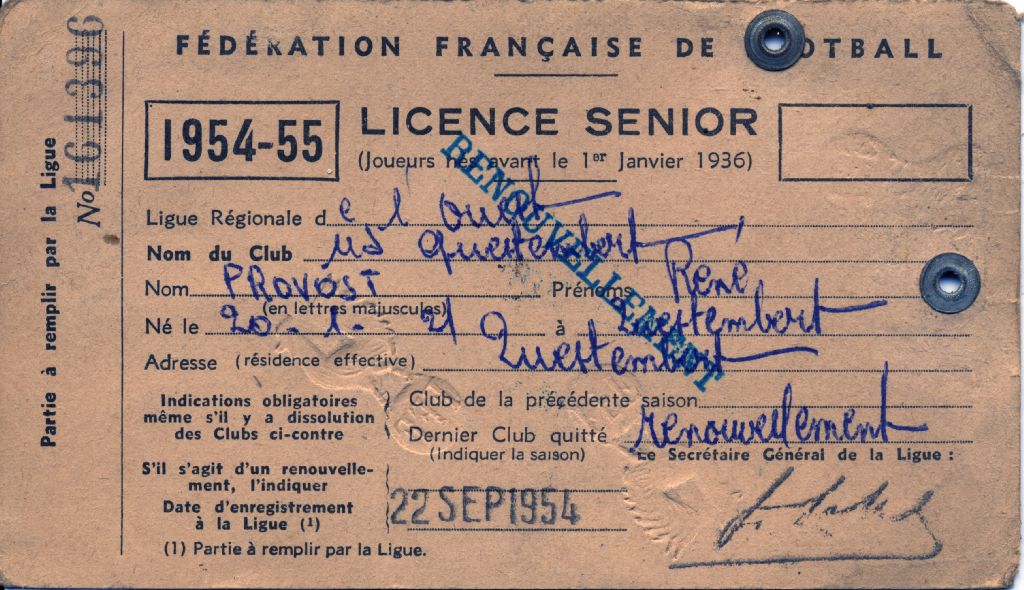 FÉDÉRATION FRANÇAISE DE OTBALL
1954-55
LICENCE SENIOR
(Joueurs nés avant le 1er Janvier 1936)
RENOUVELLEMENT
Partie à remplir par la Ligue
No 161396
Ligue Régionale de l'Ouest
Nom du Club US Questembert
Nom PROVOST Prénoms René
(en lettres majuscules)
Né le 20-1-21 à Questembert
Adresse (résidence effective) Questembert
Indications obligatoires
même s'il y a dissolution
des Clubs ci-contre
Club de la précédente saison
Dernier Club quitté renouvellement
(Indiquer la saison)
Le Secrétaire Général de la Ligue :
S'il s'agit d'un renouvelle-
ment, l'indiquer
Date d'enregistrement
à la Ligue (1)
22 SEP 1954
(1) Partie à remplir par la Ligue.